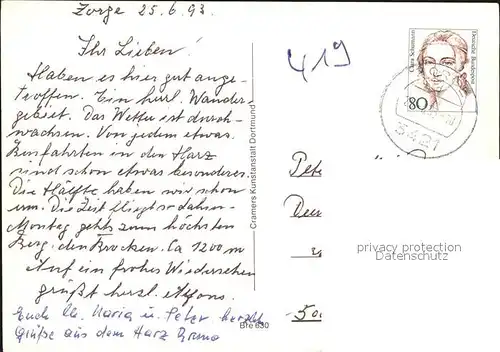 Zorge 25.6.93.
Ihr Lieben!
Haben es hier gut ange-
troffen. Ein herrl. Wander-
gebiet. Das Wetter ist durch-
wachsen. Von jedem etwas.
fahrten in den Harz
sind schon etwas besonderes.
Die Hälfte haben wir schon
um. Die Zeit fliegt so dahin.
Montag gehts zum höchsten
Berg, den Brocken. Ca 1200 m
Auf ein frohes Wiedersehen
grüßt herzl. Alfons.
Euch lb. Maria u. Peter herzl.
Grüße aus dem Harz Erna
Cramers Kunstanstalt Dortmund
Bre 630
419
Clara Schumann
Deutsche Bundespost
80
3421
Pete
privacy protection
Samples